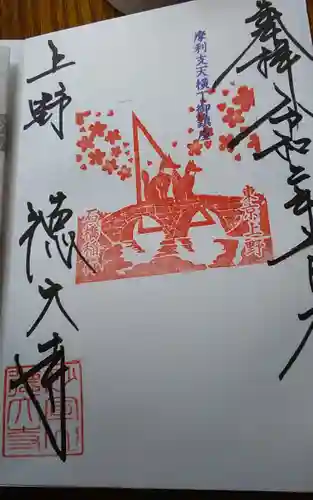 奉拝
令和二年
月
摩利支天横丁御鎮座
東京上野
上野
徳大寺